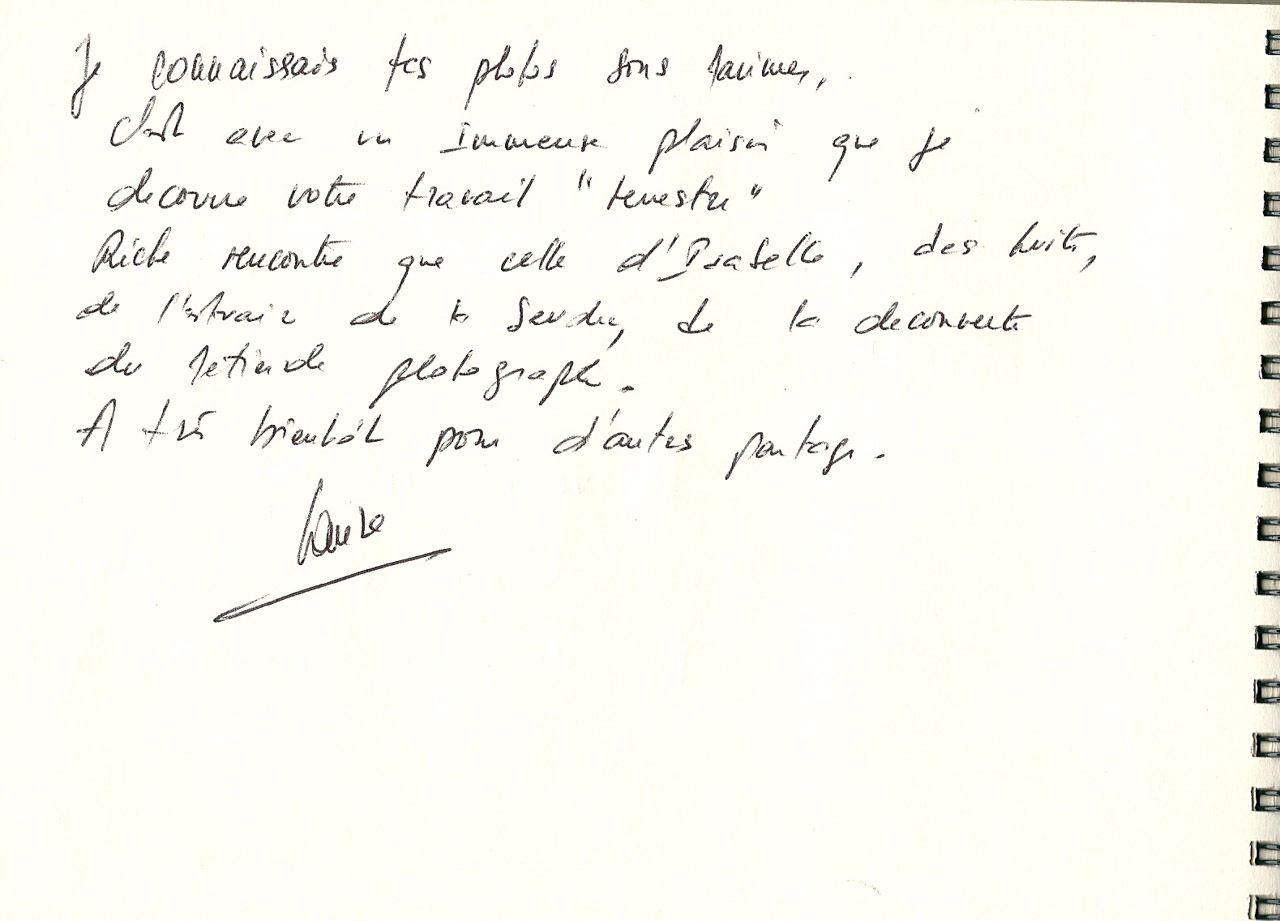 Je connaissais tes photos sous marines,
C'est avec un Immense plaisir que je
decouvre votre travail "terrestre"
Riche rencontre que celle d'Isabelle, des huitres,
de l'estuaire de la Seudre, de la decouverte
du photographe.
A très bientôt pour d'autres partages.